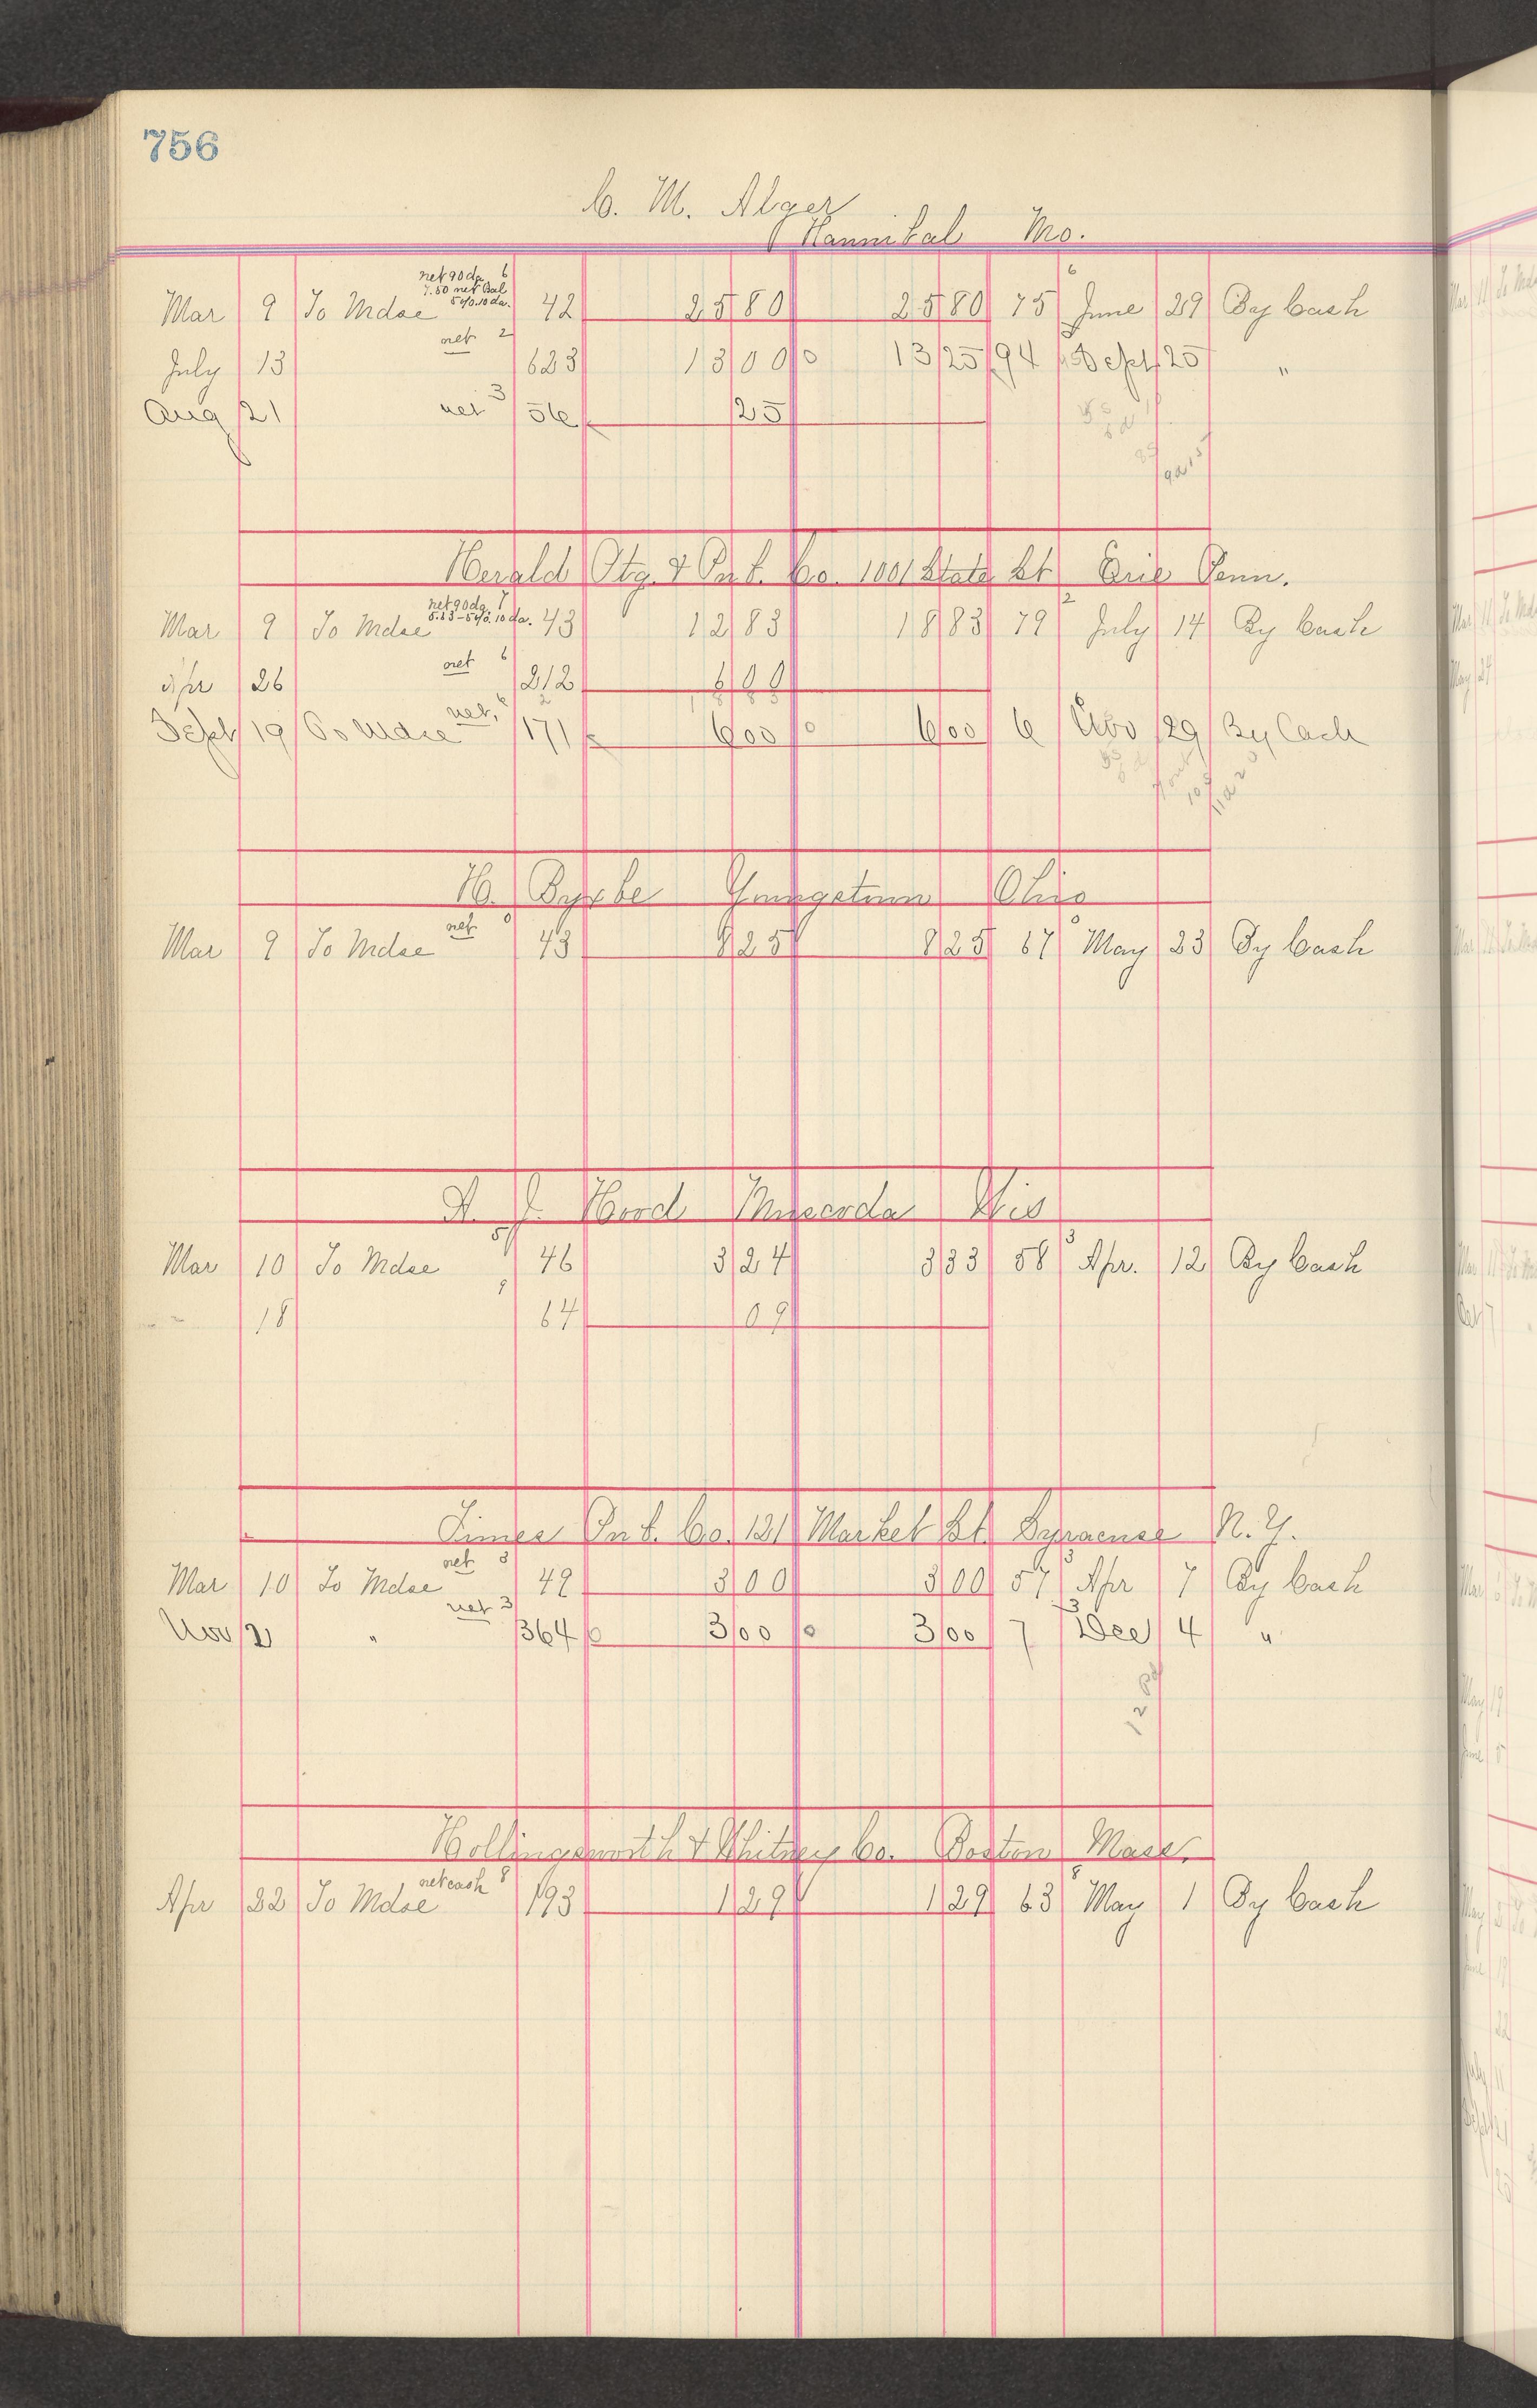 756
C. M. Alger
Hannibal Mo.
net 90 da 6
7.50 net Bal
5% 10 da.
6
Mar 9 To Mdse 42 25 80 25 80 75 June 29 By Cash
net 2
July 13 623 13 00 0 13 25 94 Sept 25 "
Aug 21 net 3 56 25
Herald Ptg. & Pub. Co. 1001 State St Erie Penn.
net 90 da. 7
5.23 - 5% 10 da.
2
Mar 9 To Mdse 43 12 83 18 83 79 July 14 By Cash
net 6
Apr 26 212 6 00
net 6
Sept 19 To Mdse 171 6 00 0 6 00 6 Nov 29 By Cash
H. Byxbe Youngstown Ohio
net
Mar 9 To Mdse 43 8 25 8 25 67 May 23 By Cash
A. J. Hord Muscoda Wis
5 3
Mar 10 To Mdse 46 3 24 3 33 58 Apr. 12 By Cash
9
18 64 09
Times Pub. Co. 131 Market St. Syracuse N. Y.
net 3 3
Mar 10 To Mdse 49 3 00 3 00 57 Apr 7 By Cash
net 3 3
Nov 2 " 364 3 00 0 3 00 7 Dec 4 "
Hollingsworth & Whitney Co. Boston Mass.
net cash 8 8
Apr 22 To Mdse 193 1 29 1 29 63 May 1 By Cash